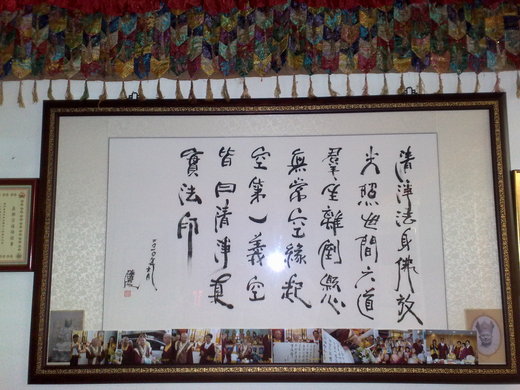 清淨法身佛放
光照世間六道
羣生離倒懸心
無常空緣起
空第一義空
皆曰清淨真
實法印